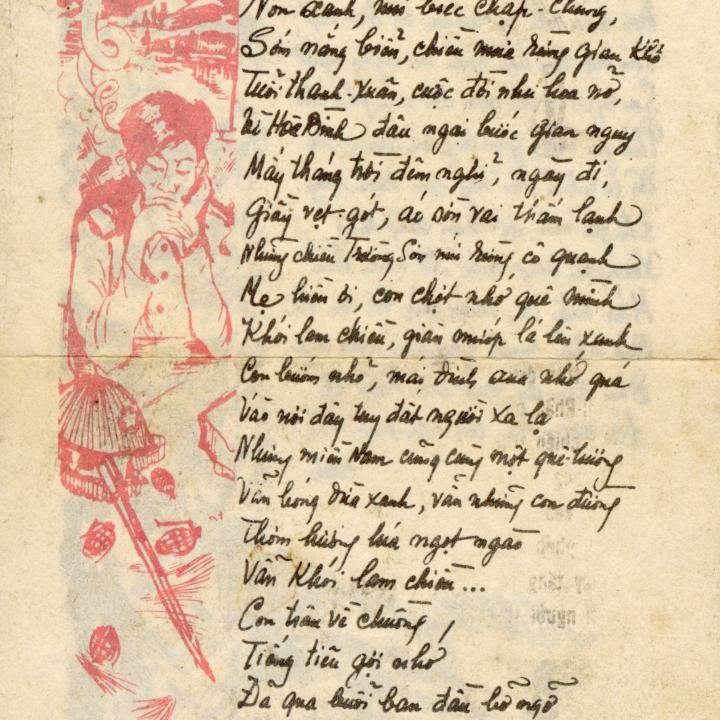 Non xanh, núi biếc chập-chùng,
Sớm nắng biển, chiều mưa rừng gian khổ
Tuổi thanh-xuân, cuộc đời như hoa nở,
Vì Hòa Bình đâu ngại bước gian nguy
Mấy tháng trời đêm nghỉ, ngày đi,
Giầy vẹt gót, áo sờn vai thấm lạnh
Những chiều Trường Sơn núi rừng cô quạnh
Mẹ hiền ơi, con chợt nhớ quê mình
Khói lam chiều, giàn mướp lá lên xanh
Con bướm nhỏ, mái đình xưa nhớ quá
Vào nơi đây tuy đất người xa lạ
Nhưng miền Nam cũng cùng một quê-hương
Vẫn bóng dừa xanh, vẫn những con đường
Thơm hương lúa ngọt ngào
Vẫn khói lam chiều...
Con trâu về chuồng,
Tiếng tiêu gợi nhớ
Đã qua buổi ban đầu bỡ ngỡ